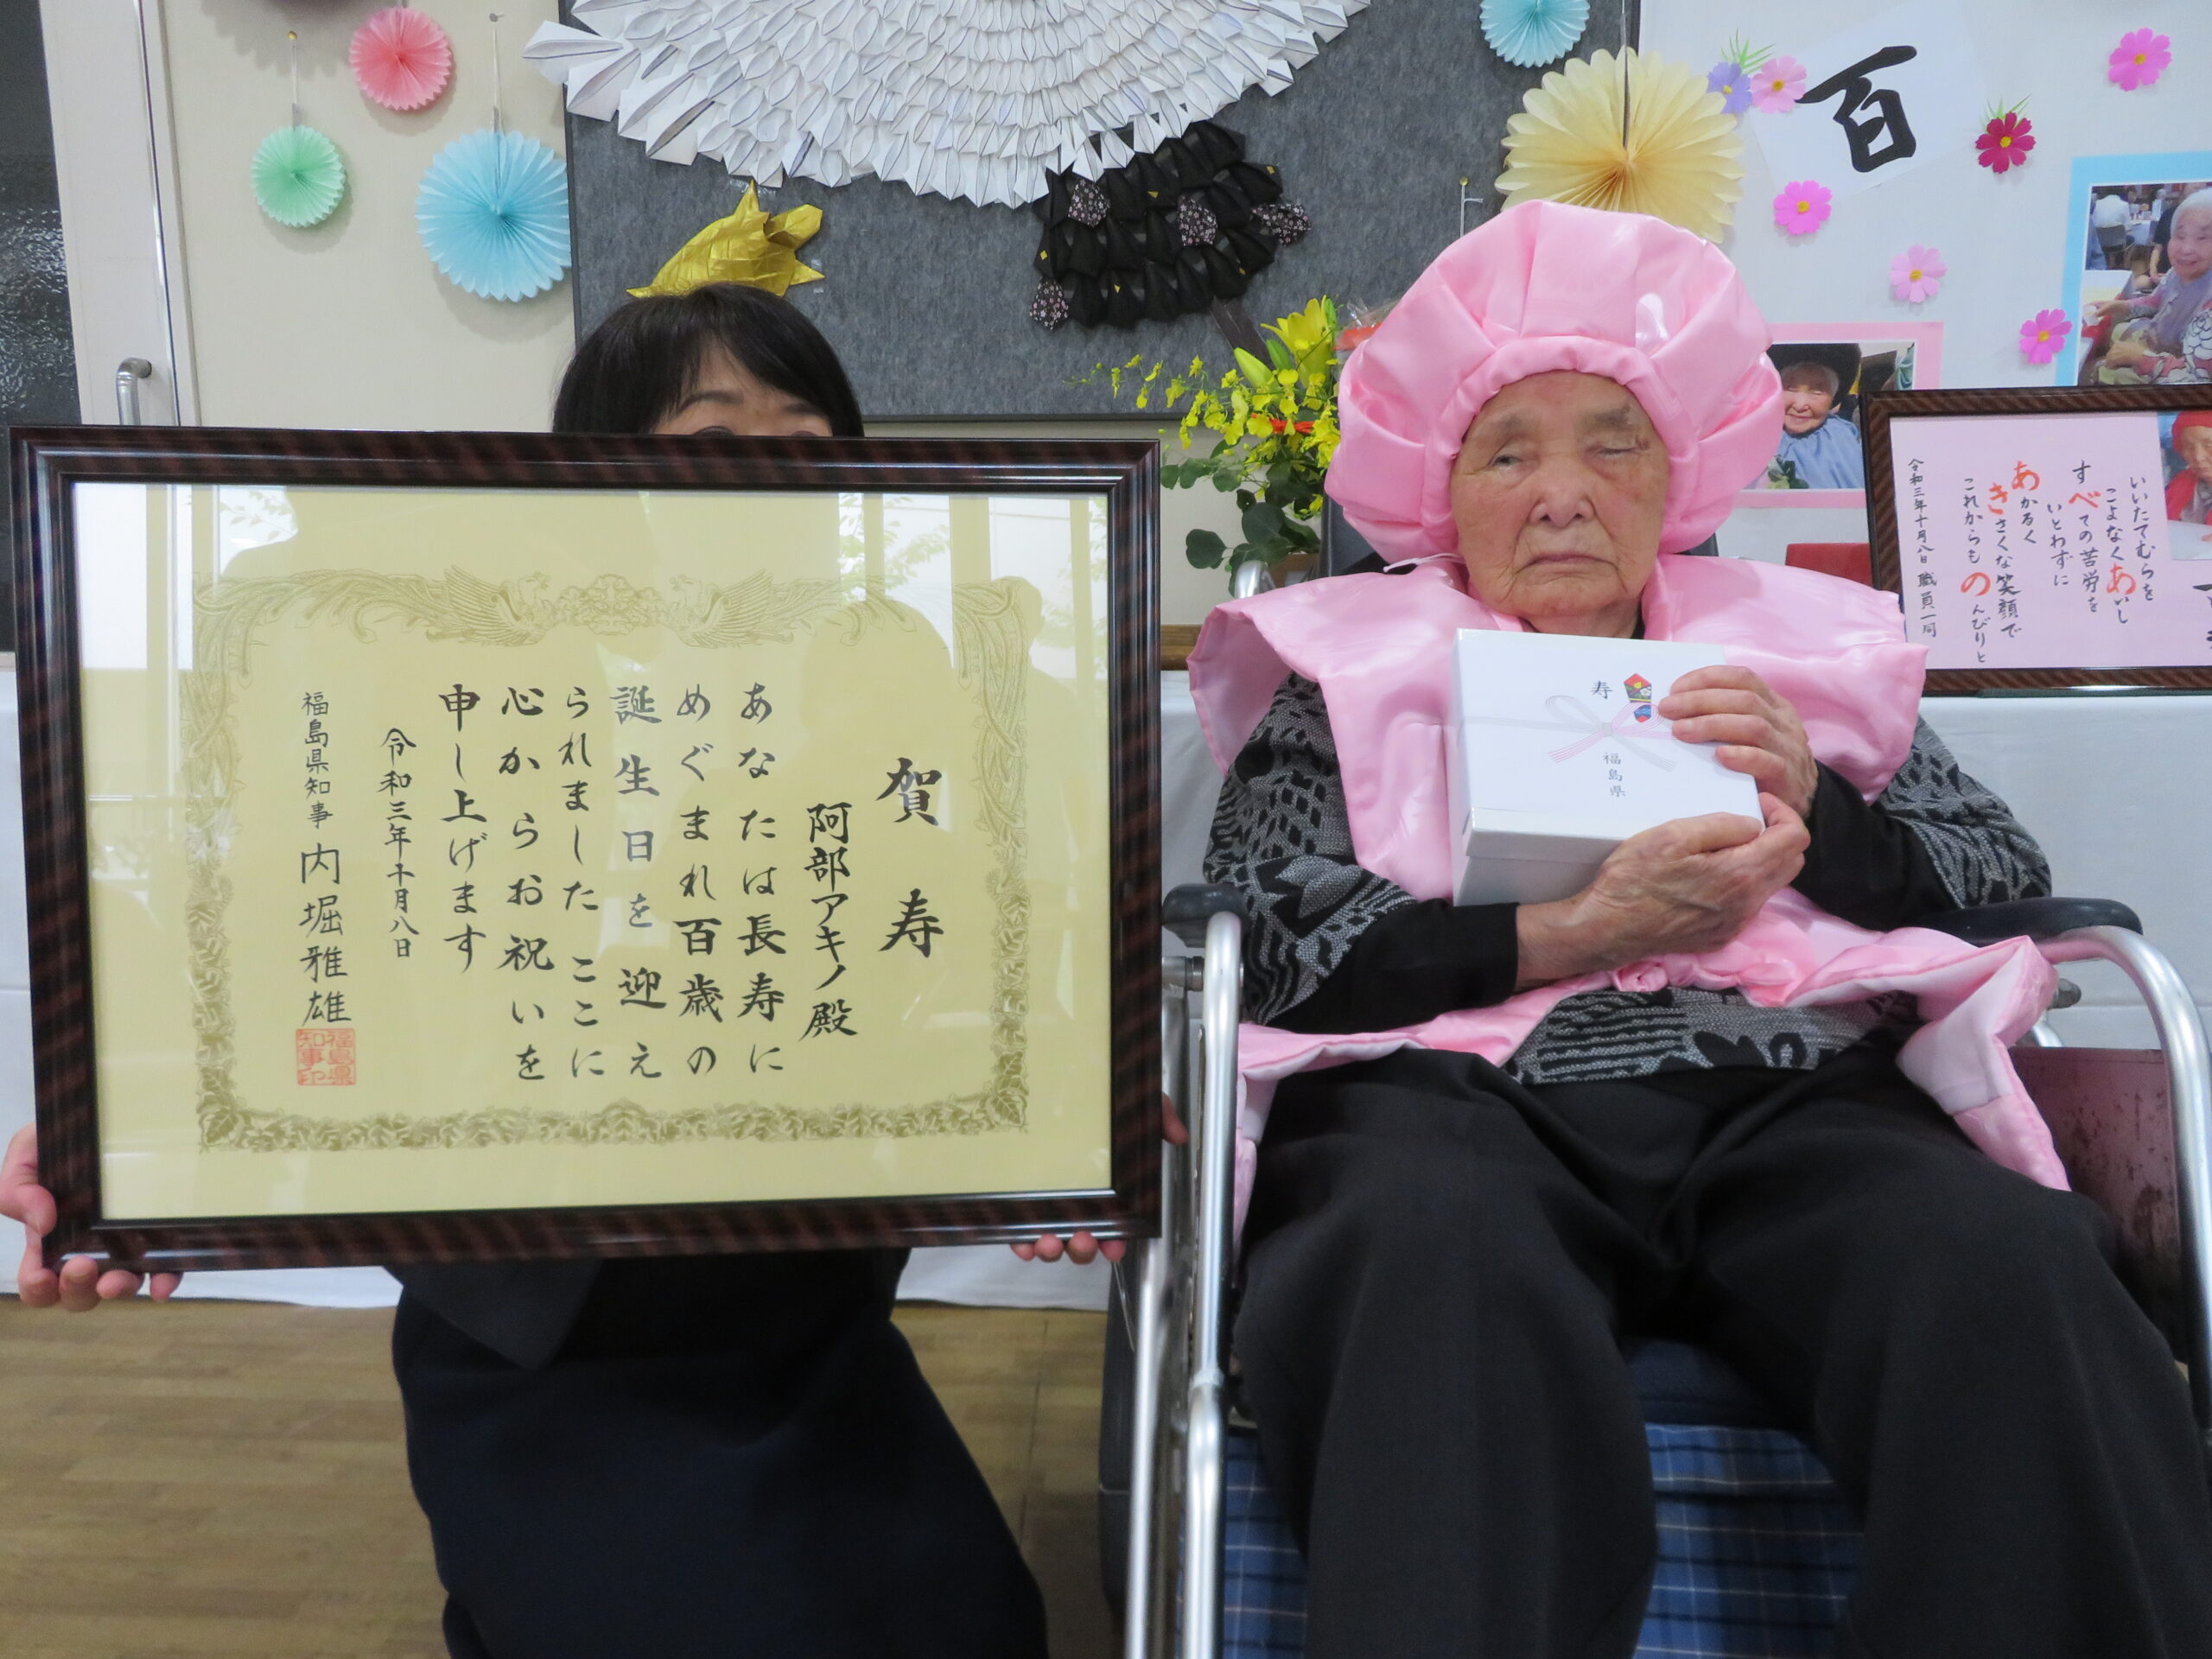 賀寿
阿部アキノ殿
あなたは長寿に
めぐまれ百歳の
誕生日を迎え
られました ここに
心からお祝いを
申し上げます
令和三年十月八日
福島県知事 内堀雅雄
福島県
知事印
百
寿
福島県
いいたてむらを
こよなくあいし
すべての苦労を
いとわずに
あかるく
きさくな笑顔で
これからものんびりと
令和三年十月八日 職員一同